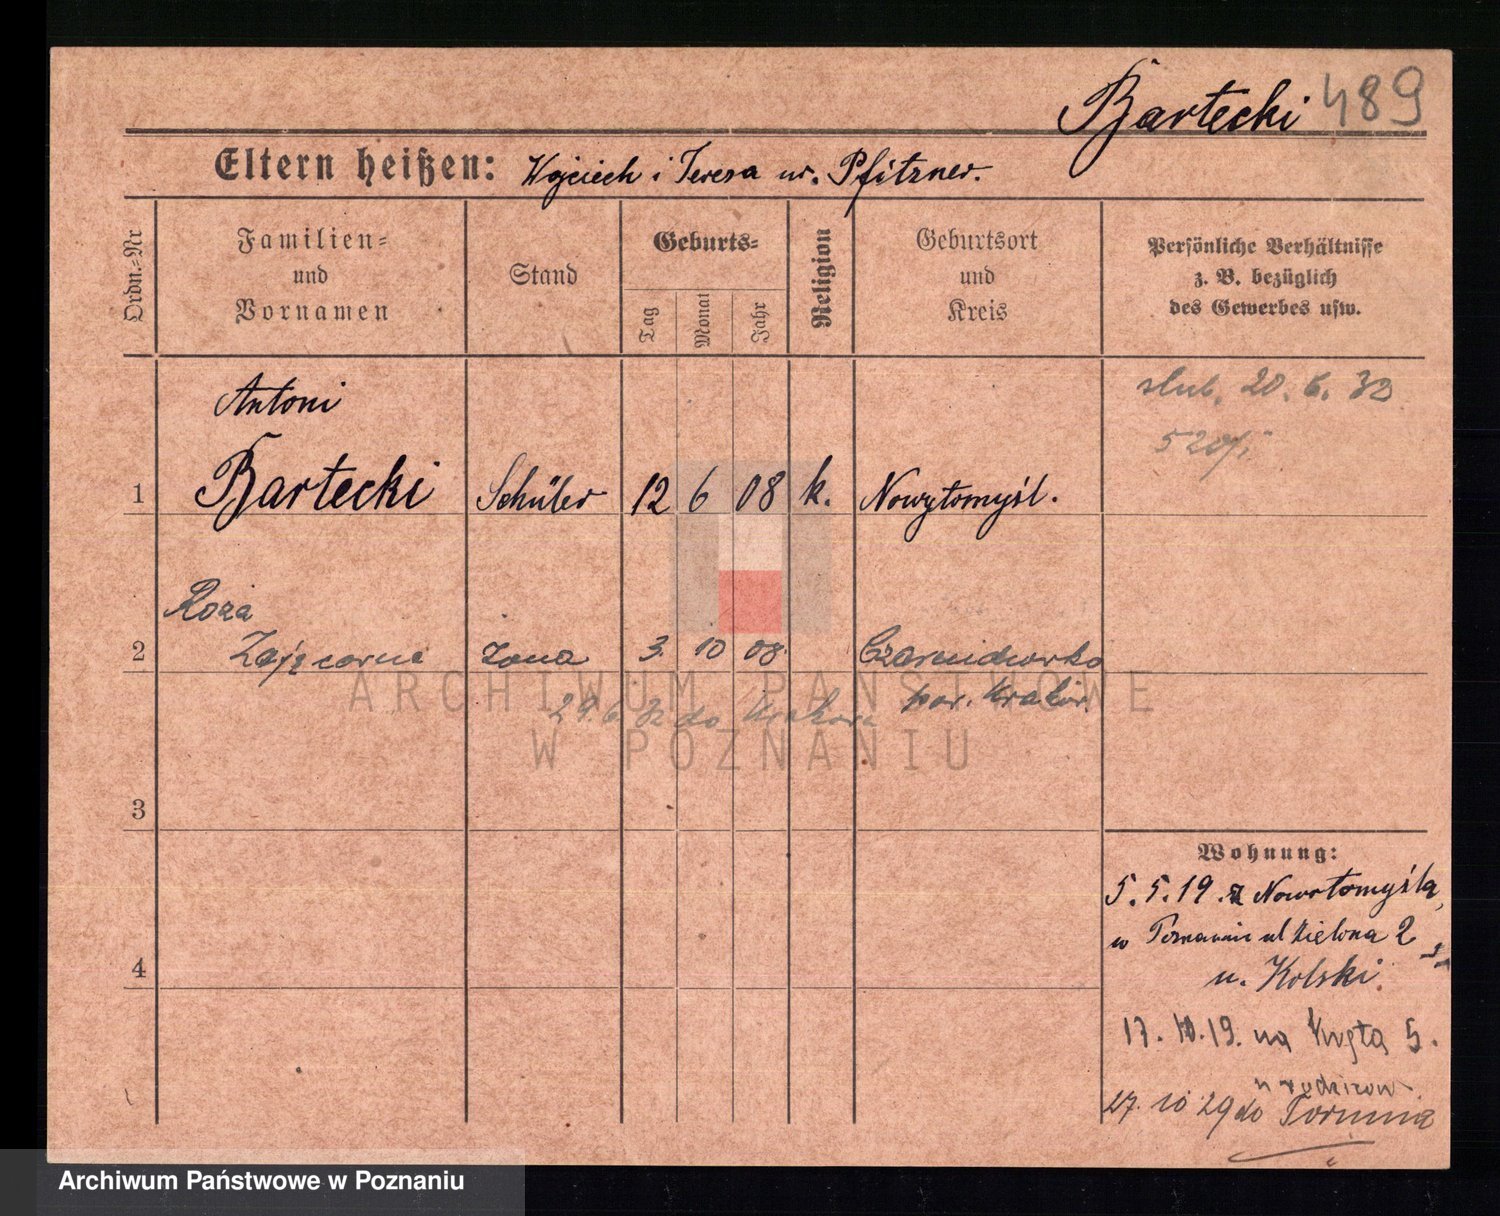 Bartecki 489
Eltern heißen: Wojciech i Teresa ur. Pfitzner.
Ordn.-Nr
Familien-
und
Vornamen
Stand
Geburts-
Tag
Monat
Jahr
Religion
Geburtsort
und
Kreis
Persönliche Verhältnisse
z. B. bezüglich
des Gewerbes usw.
Antoni
1 Bartecki Schüler 12 6 08 k. Nowytomyśl.
ślub. 20. 6. 30
520/
Roża
2 Zającorna żona 3. 10 08. Czernichowko
pow. Kraków.
29. 6. do Krakowa
3
4
Wohnung:
5. 5. 19. z Nowotomyśla,
w Poznaniu ul Zielona 2
u. Kolski.
17. 10. 19. na Kręta 5.
u rodziców
27. 10 29 do Torunia
ARCHIWUM PAŃSTWOWE
W POZNANIU
Archiwum Państwowe w Poznaniu